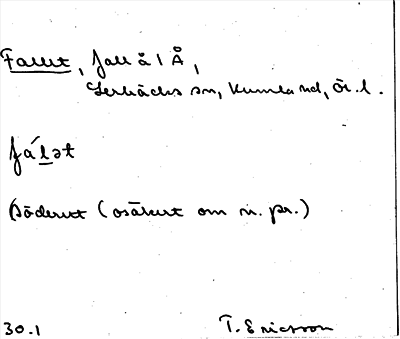 Fallet, fall å l Å,
Lerbäcks sn, Kumla hd, Ör. l.
fá̱lət
Söderut (osäkert om n. pr.)
30.1 T. Ericsson